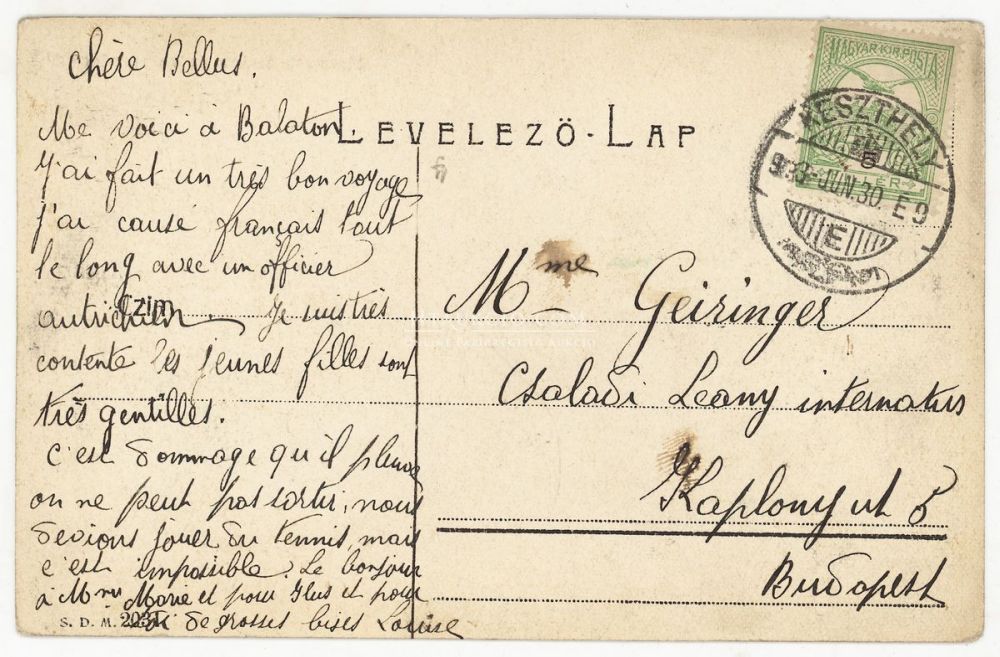 chère Bellus.
Me voici à Balaton.
J'ai fait un très bon voyage
j'ai causé français tout
le long avec un officier
autrichien. Je suis très
contente les jeunes filles sont
très gentilles.
c'est dommage qu'il pleuve
on ne peut pas sortir, nous
devions jouer du tennis, mais
c'est impossible. Le bonjour
à Mme Marie et pour Ilus et pour
de grosses bises Louise
LEVELEZŐ-LAP
Czim
S. D. M.
MAGYAR KIR. POSTA
KESZTHELY
JUN. 30. E9
E
Mme Geiringer
Csaladi Leany internatus
Kaplony ut 5
Budapest